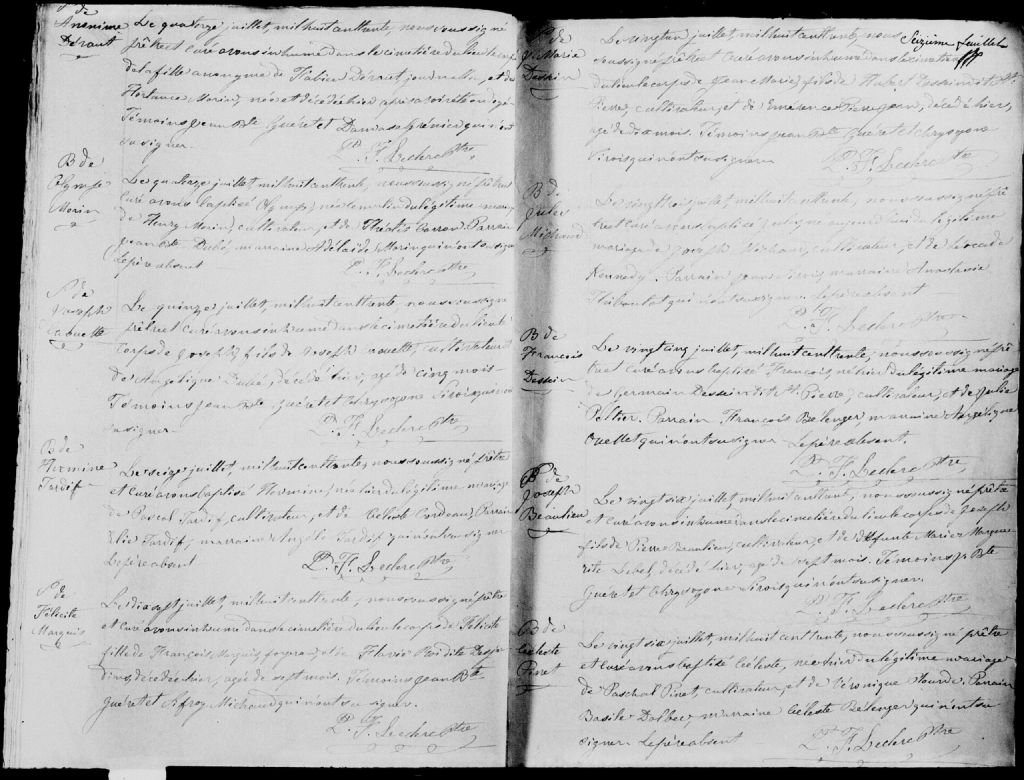 S. de
Anonime
Déraut
Le quatorze juillet, mil huit cent trente, nous soussigné
prêtre et curé avons inhumé dans le cimetière du lieu le corps
de la fille anonyme de Fabien Déraut, journalier, et de
Hortance Morin, née et décédée hier après avoir été ondoyée
Témoins Jean Bte Guéret et Damase Grénier qui n'ont
su signer.
P. F. Leclerc Ptre
B de
Olympe
Morin
Le quatorze juillet, mil huit cent trente, nous soussigné prêtre et
curé avons baptisé Olympe, née le matin du légitime mariage
de Henry Morin, cultivateur, et de Caron. Parrain
Jean Bte Dubé marraine Adélaïde Morin qui n'ont su signer
Le père absent
P. F. Leclerc Ptre
S de
Joseph
Le quinze juillet, mil huit cent trente, nous soussigné
prêtre et curé avons inhumé dans le cimetière du lieu le
corps de Joseph, fils de Joseph cultivateur et
de Angélique Dubé, décédé hier, agé de cinq mois
Témoins Jean Bte Guéret et Chrysogone Sirois qui n'ont
su signer.
P. F. Leclerc Ptre
B de
Hermine
Tardif
Le seize juillet, mil huit cent trente, nous soussigné, prêtre
et curé avons baptisé Hermine, née hier du légitime mariage
de Pascal Tardif, cultivateur, et de Céleste Parrain
Elie Tardif, marraine Angèle Tardif qui n'ont su signer
Le père absent
P. F. Leclerc Ptre
S de
Félicité
Marquis
Le dix sept juillet, mil huit cent trente, nous soussigné prêtre
et curé avons inhumé dans le cimetière du lieu le corps de Félicité
fille de François Marquis, forgeron, et de Flavie
décédée hier, agée de sept mois. Témoins Jean Bte
Guéret et Michaud qui n'ont su signer.
P. F. Leclerc Ptre
Seizième feuillet
S de
J. Marie
Dessein
Le vingt un juillet, mil huit cent trente, nous
soussigné prêtre et curé avons inhumé dans le cimetière
du lieu le corps de Jean Marie, fils de Hubert Dessein dit St
Pierre, cultivateur, et de Emérence décédé hier,
agé de dix mois. Témoins Jean Bte Guéret et Chrysogone
Sirois qui n'ont su signer
P. F. Leclerc Ptre
B de
Jules
Michaud
Le vingt trois juillet, mil huit cent trente, nous soussigné prê-
tre et curé avons baptisé Jules, né aujourd'hui du légitime
mariage de Joseph Michaud, cultivateur, et de Léocade
Kennedy. Parrain marraine Anastasie
Thiboutot qui n'ont su signer. Le père absent
P. F. Leclerc Ptre
B de
François
Dessein
Le vingt cinq juillet, mil huit cent trente, nous soussigné prê-
tre et curé avons baptisé François, né hier du légitime mariage
de Germain Dessein dit St. Pierre, cultivateur, et de Julie
Peltier. Parrain François Bélenger, marraine Angélique
Ouellet qui n'ont su signer Le père absent.
P. F. Leclerc Ptre
S de
Joseph
Beaulieu
Le vingt six juillet, mil huit cent trente, nous soussigné prêtre
et curé avons inhumé dans le cimetière du lieu le corps de Joseph
fils de Pierre Beaulieu, cultivateur, et de défunte Marie Margue
rite Lebel, décédé hier, agé de sept mois. Témoins J. Bte
Guéret et Chrysogone Sirois qui n'ont su signer.
P. F. Leclerc Ptre
B de
Céleste
Pinet
Le vingt six juillet, mil huit cent trente, nous soussigné prêtre
et curé avons baptisé Céleste, née hier du légitime mariage
de Paschal Pinet, cultivateur, et de Véronique Parrain
Basile Dolbec, marraine Céleste Bélenger qui n'ont su
signer. Le père absent
P. F. Leclerc Ptre